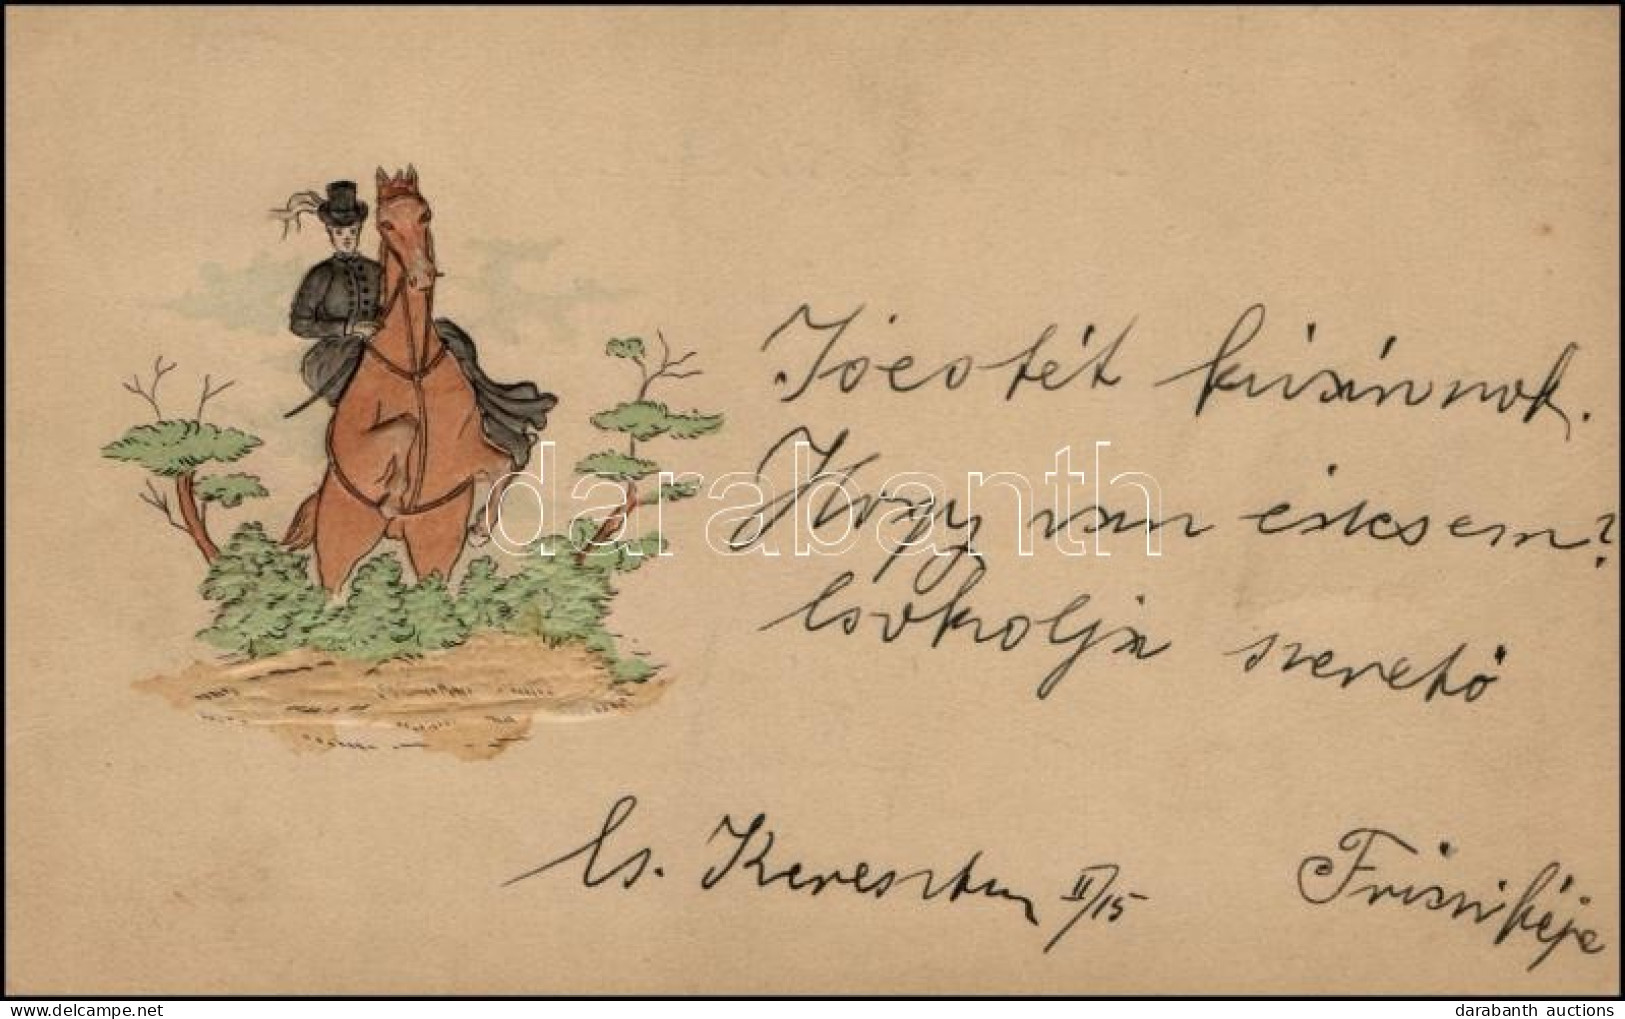 Jóestét kívánnok.
Hogy van édesem?
Csókolja szerető
Cs. Keresztur II/15
darabanth
darabanth auctions